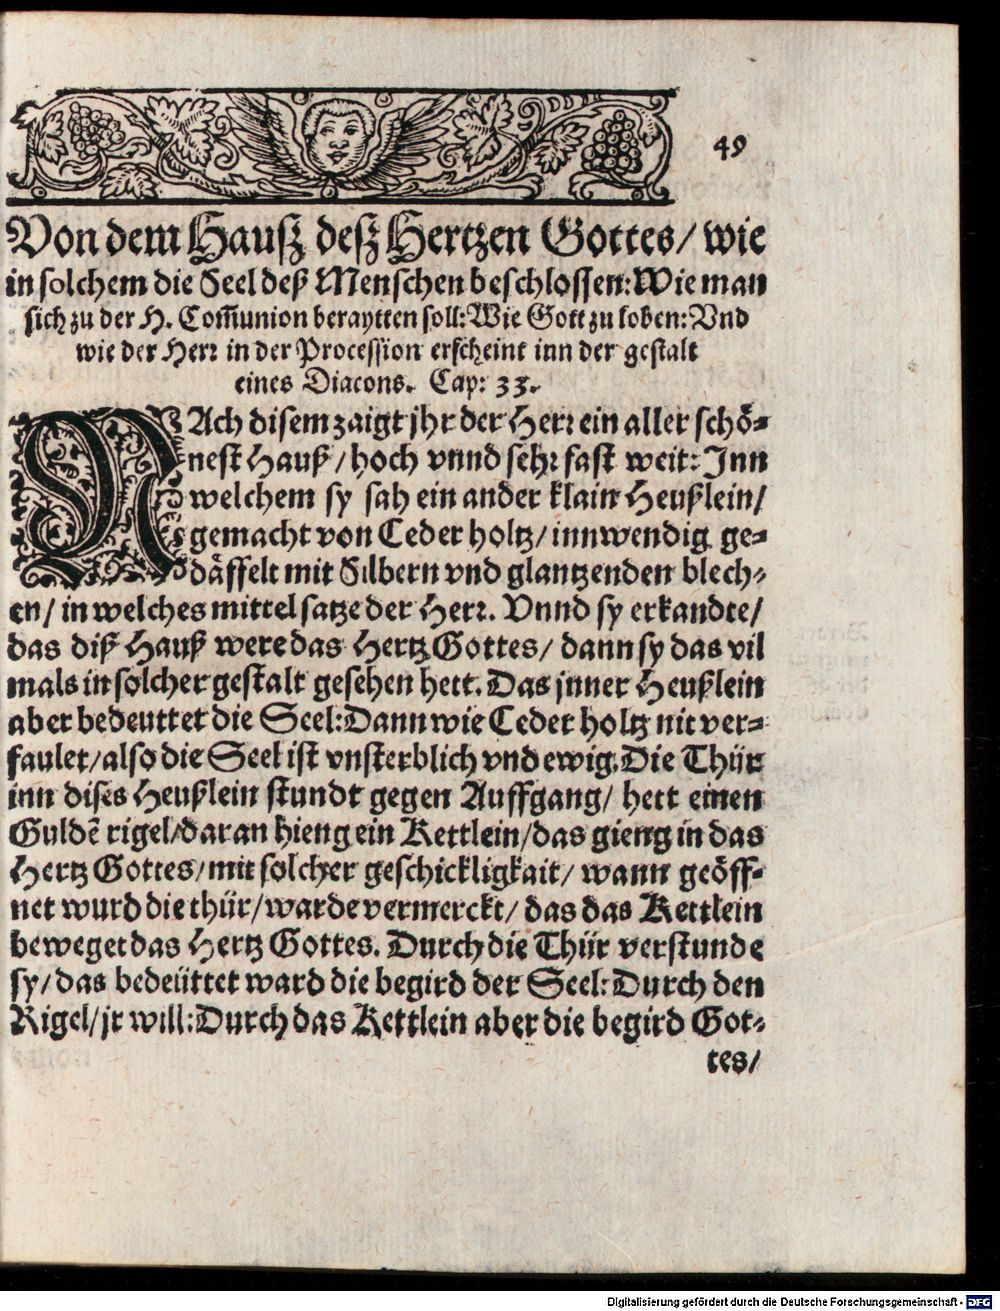 49
Von dem Hausz desz Hertzen Gottes/ wie
in solchem die Seel deß Menschen beschlossen: Wie man
sich zu der H. Com̃union beraytten soll: Wie Gott zu loben: Vnd
wie der Herr in der Procession erscheint inn der gestalt
eines Diacons. Cap: 33.
NAch disem zaigt jhr der Herr ein aller schö-
nest Hauß/ hoch vnnd sehr fast weit: Inn
welchem sy sah ein ander klain Heußlein/
gemacht von Ceder holtz/ innwendig ge-
däffelt mit Silbern vnd glantzenden blech-
en/ in welches mittel satze der Herr. Vnnd sy erkandte/
das diß Hauß were das Hertz Gottes/ dann sy das vil
mals in solcher gestalt gesehen hett. Das jnner Heußlein
aber bedeuttet die Seel: Dann wie Ceder holtz nit ver-
faulet/ also die Seel ist vnsterblich vnd ewig. Die Thür
inn dises Heußlein stundt gegen Auffgang/ hett einen
Guldẽ rigel/ daran hieng ein Kettlein/ das gieng in das
Hertz Gottes/ mit solcher geschickligkait/ wann geöff-
net wurd die thür/ warde vermerckt/ das das Kettlein
beweget das Hertz Gottes. Durch die Thür verstunde
sy/ das bedeüttet ward die begird der Seel: Durch den
Rigel/ jr will: Durch das Kettlein aber die begird Got-
tes/
Digitalisierung gefördert durch die Deutsche Forschungsgemeinschaft - DFG